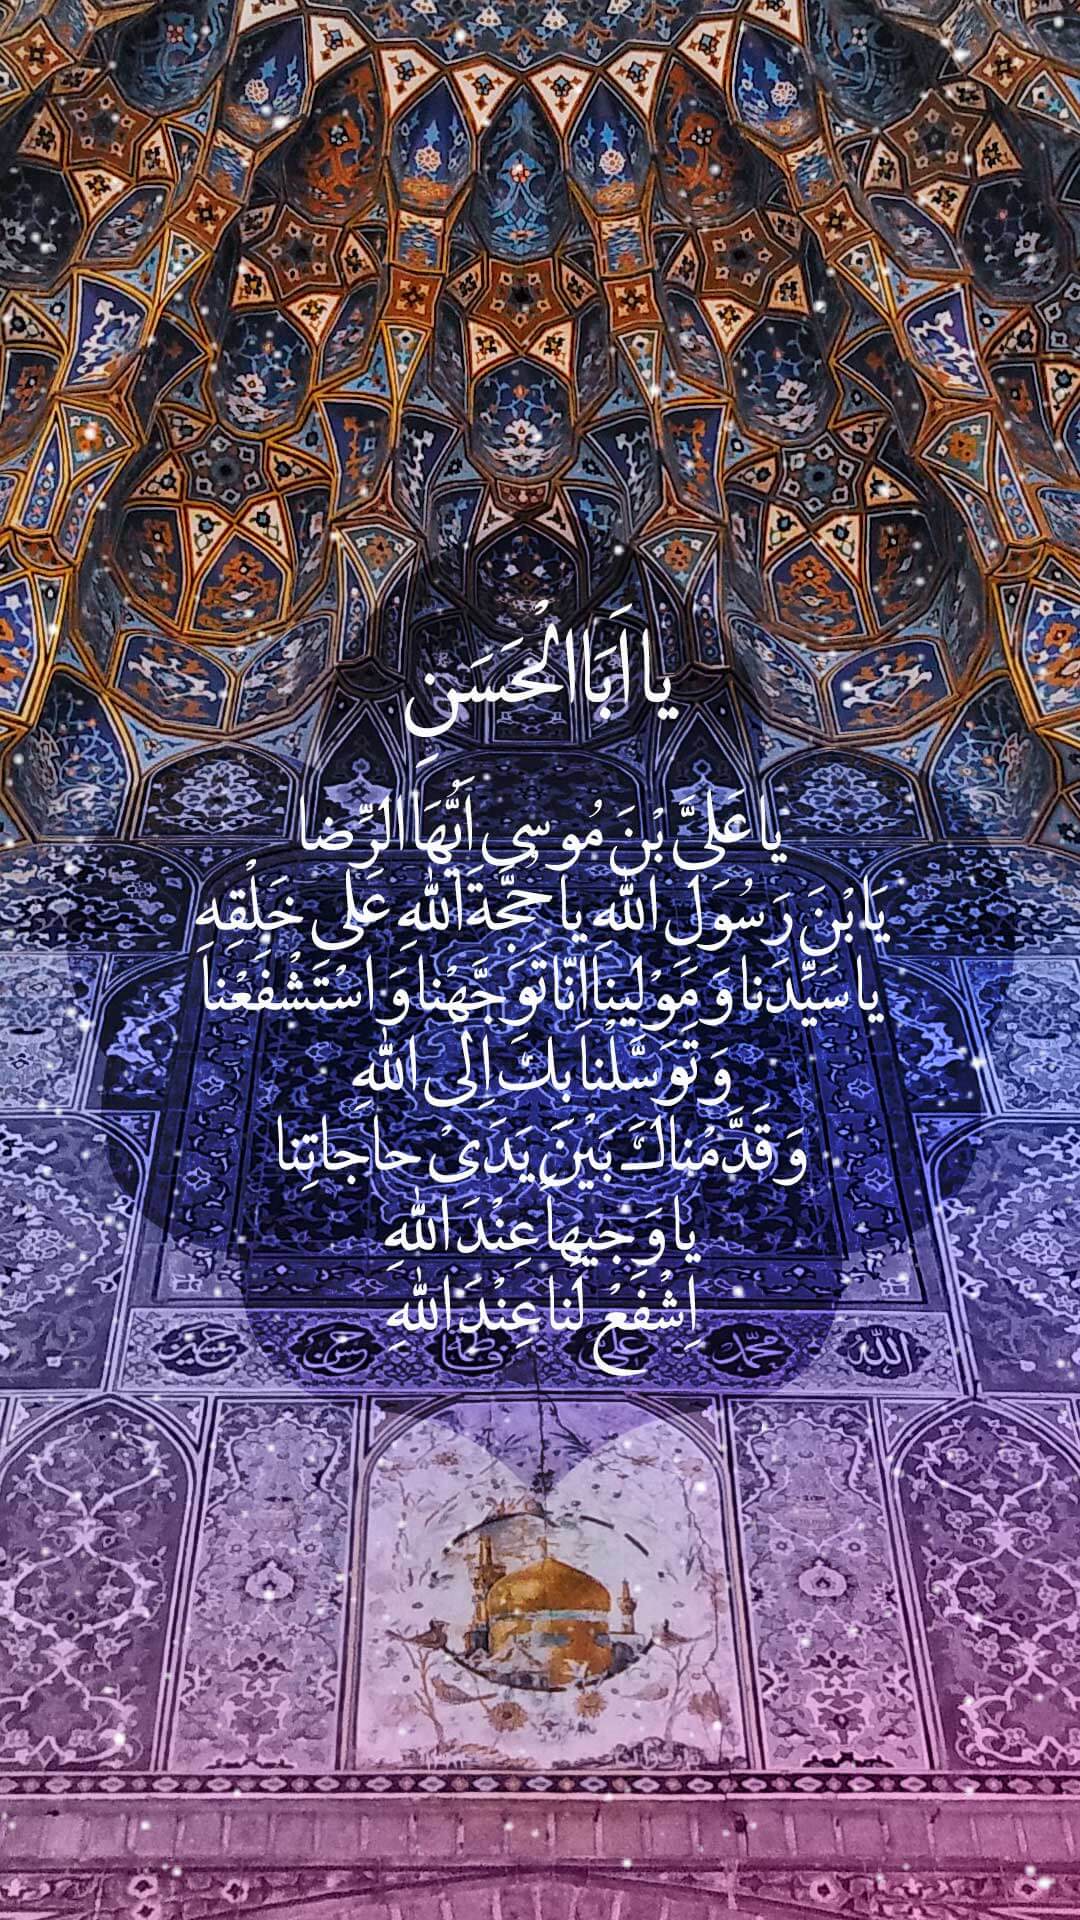 يا اَبَا الْحَسَنِ
يا عَلِىَّ بْنَ مُوسى اَيُّهَا الرِّضا
يَا بْنَ رَسُولِ اللّهِ يا حُجَّةَ اللّهِ عَلى خَلْقِهِ
يا سَيِّدَنا وَ مَوْلينا اِنّا تَوَجَّهْنا وَ اسْتَشْفَعْنا
وَ تَوَسَّلْنا بِكَ اِلَى اللّهِ
وَ قَدَّمْناكَ بَيْنَ يَدَىْ حاجاتِنا
يا وَجيهاً عِنْدَ اللّهِ
اِشْفَعْ لَنا عِنْدَ اللّهِ
الله محمد علی فاطمة حسن حسین